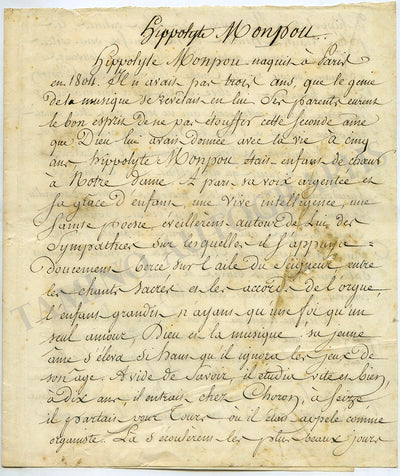 Hippolyte Monpou.
Hippolyte Monpou naquit à Paris
en 1804. Il n'avait pas trois ans, que le génie
de la musique se révélait en lui Ses parents eurent
le bon esprit de ne pas étouffer cette seconde âme
que Dieu lui avait donnée avec la vie à cinq
ans hippolyte Monpou était enfant de chœur
à Notre Dame. A part sa voix argentée et
sa grâce d'enfant, une vive intelligence, une
sainte poësie, éveillèrent autour de lui des
sympathies sur lesquelles il s'appuya
doucement bercé sur l'aile du Seigneur, entre
les chants sacrés et les accords de l'orgue,
l'enfant grandit n'ayant qu'une foi qu'un
seul amour, Dieu et la musique, sa jeune
âme s'éleva si haut qu'il ignora les jeux de
son age. Avide de savoir, il étudia vite et bien,
à dix ans, il entrait chez Choron, à seize
il partait pour Tours où il était appelé comme
organiste. Là s'écoulèrent les plus beaux jours